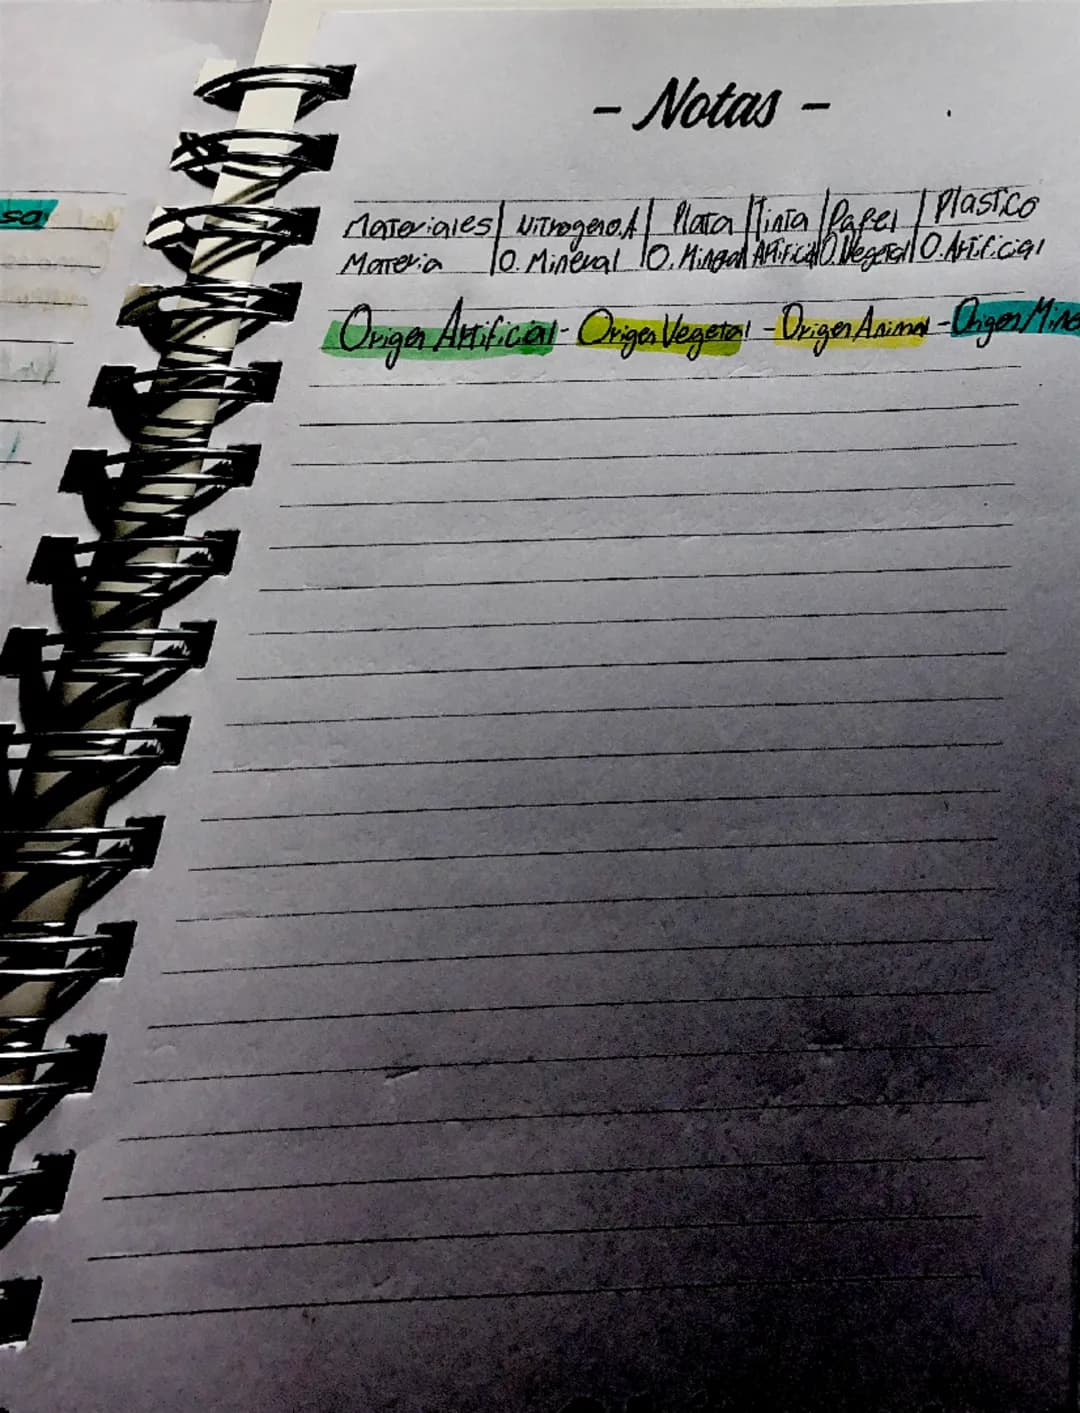 - Notas -
sa
Materiales | Nitrogeno.A | Plata | Tinta | Papel | Plastico
Materia | O. Mineral | O. Mineral | Artificial | O. Vegetal | O. Artificial
Origen Artificial - Origen Vegetal - Origen Animal - Origen Mine